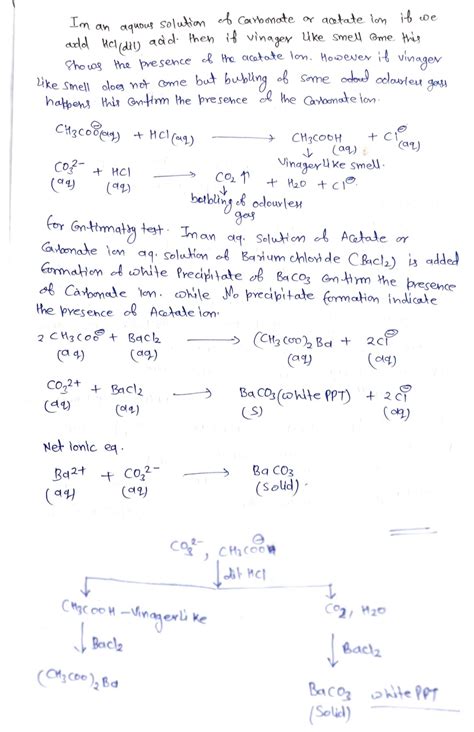 Im an aquous solution of Carbonate or acetate ion if we
add HCl(dil) acid. then if vinager like smell come this
Shows the presence of the acetate Ion. However if vinager
like smell does not come but bubling of some odord odourless gass
happens this Confirm the presence of the Carbonate ion.
CH3COO⊖(aq) + HCl(aq) ⟶ CH3COOH (aq) + Cl⊖ (aq)
↓ Vinager like smell.
CO3^2- (aq) + HCl (aq) ⟶ CO2↑ + H2O + Cl⊖
↓ bolbling of odourless
gas
for Confirmatry test. Im an aq. Solution of Acetate or
Carbonate ion aq. solution of Barium chloride (BaCl2) is added
formation of white Precipitate of BaCO3 Confirm the presence
of Carbonate ion. while No precipitate formation indicate
the presence of Acetate ion.
2 CH3COO⊖ (aq) + BaCl2 (aq) ⟶ (CH3COO)2 Ba (aq) + 2Cl⊖ (aq)
CO3^2+ (aq) + BaCl2 (aq) ⟶ BaCO3 (white PPT) (S) + 2Cl⊖ (aq)
Net Ionic eq.
Ba^2+ (aq) + CO3^2- (aq) ⟶ BaCO3 (Solid).
CO3^2-, CH3COOH⊖
↓ dil HCl
CH3COOH – Vinager like CO2, H2O
↓ BaCl2 ↓ BaCl2
(CH3COO)2 Ba BaCO3 white PPT
(Solid)